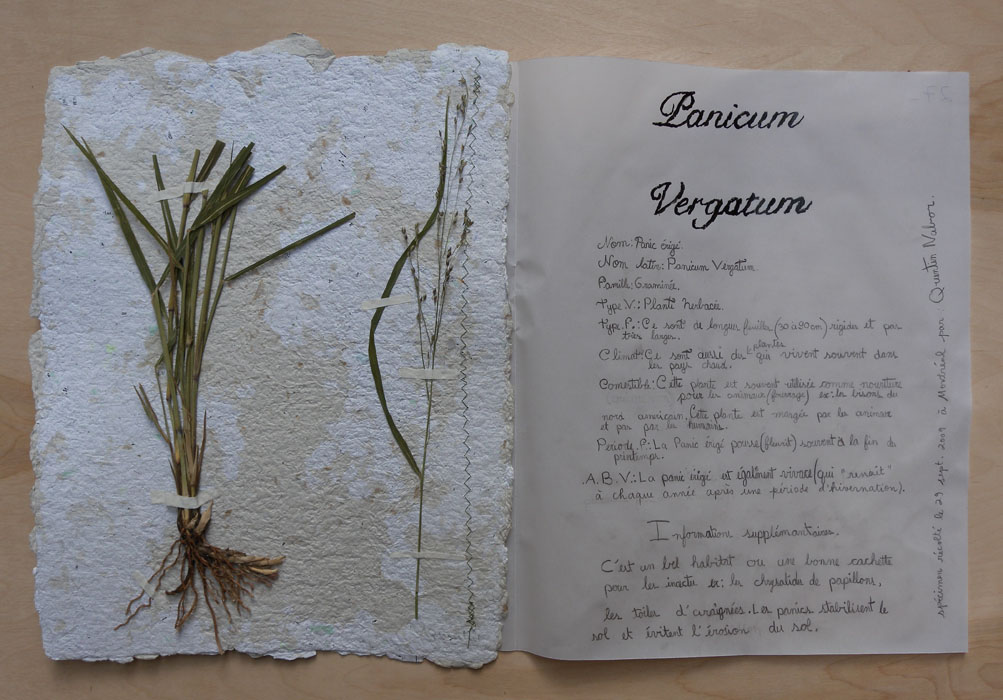 Panicum
Vergatum
Nom: Panic érigé.
Nom latin: Panicum Vergatum
Famille: Graminée.
Type V.: Plante herbacée.
Type F.: Ce sont de longues feuilles (30 à 90 cm) rigides et pas
très larges.
Climat: Ce sont aussi des plantes qui vivent souvent dans
les pays chaud.
Comestible: Cette plante est souvent utilisée comme nouriture
pour les animaux (fourrage) ex: les bisons du
nord américain. Cette plante est mangée par les animaux
et pas par les humains.
Période F.: La Panic érigé pousse (fleurit) souvent à la fin du
printemps.
A.B.V.: La panic érigé est également vivace (qui "renait"
à chaque année après une période d'hivernation).
Informations supplémantaires.
C'est un bel habitat ou une bonne cachette
pour les insectes ex: les chrysalides de papillons,
les toiles d'araignées. Les panics stabilisent le
sol et évitent l'érosion du sol.
spécimen récolté le 29 sept. 2009 à Montréal par: Quentin Nabor.